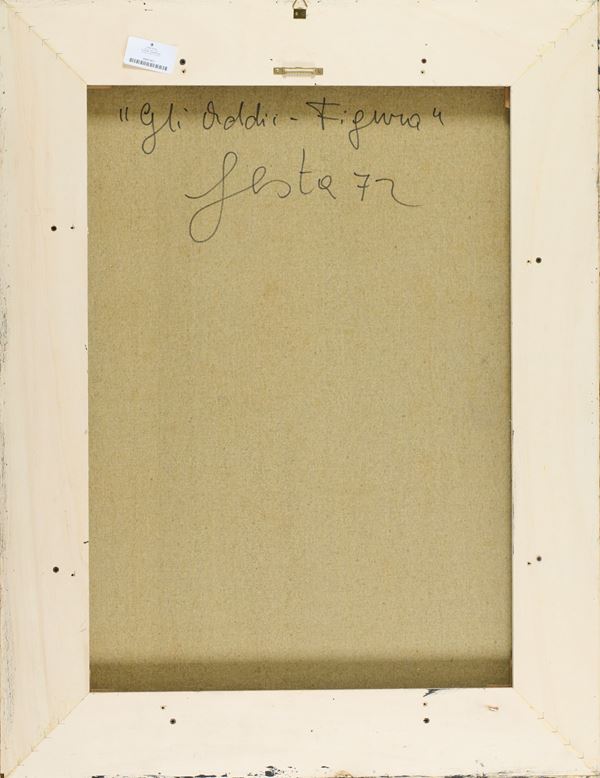 "Gli Addii - Figura"
festa 72